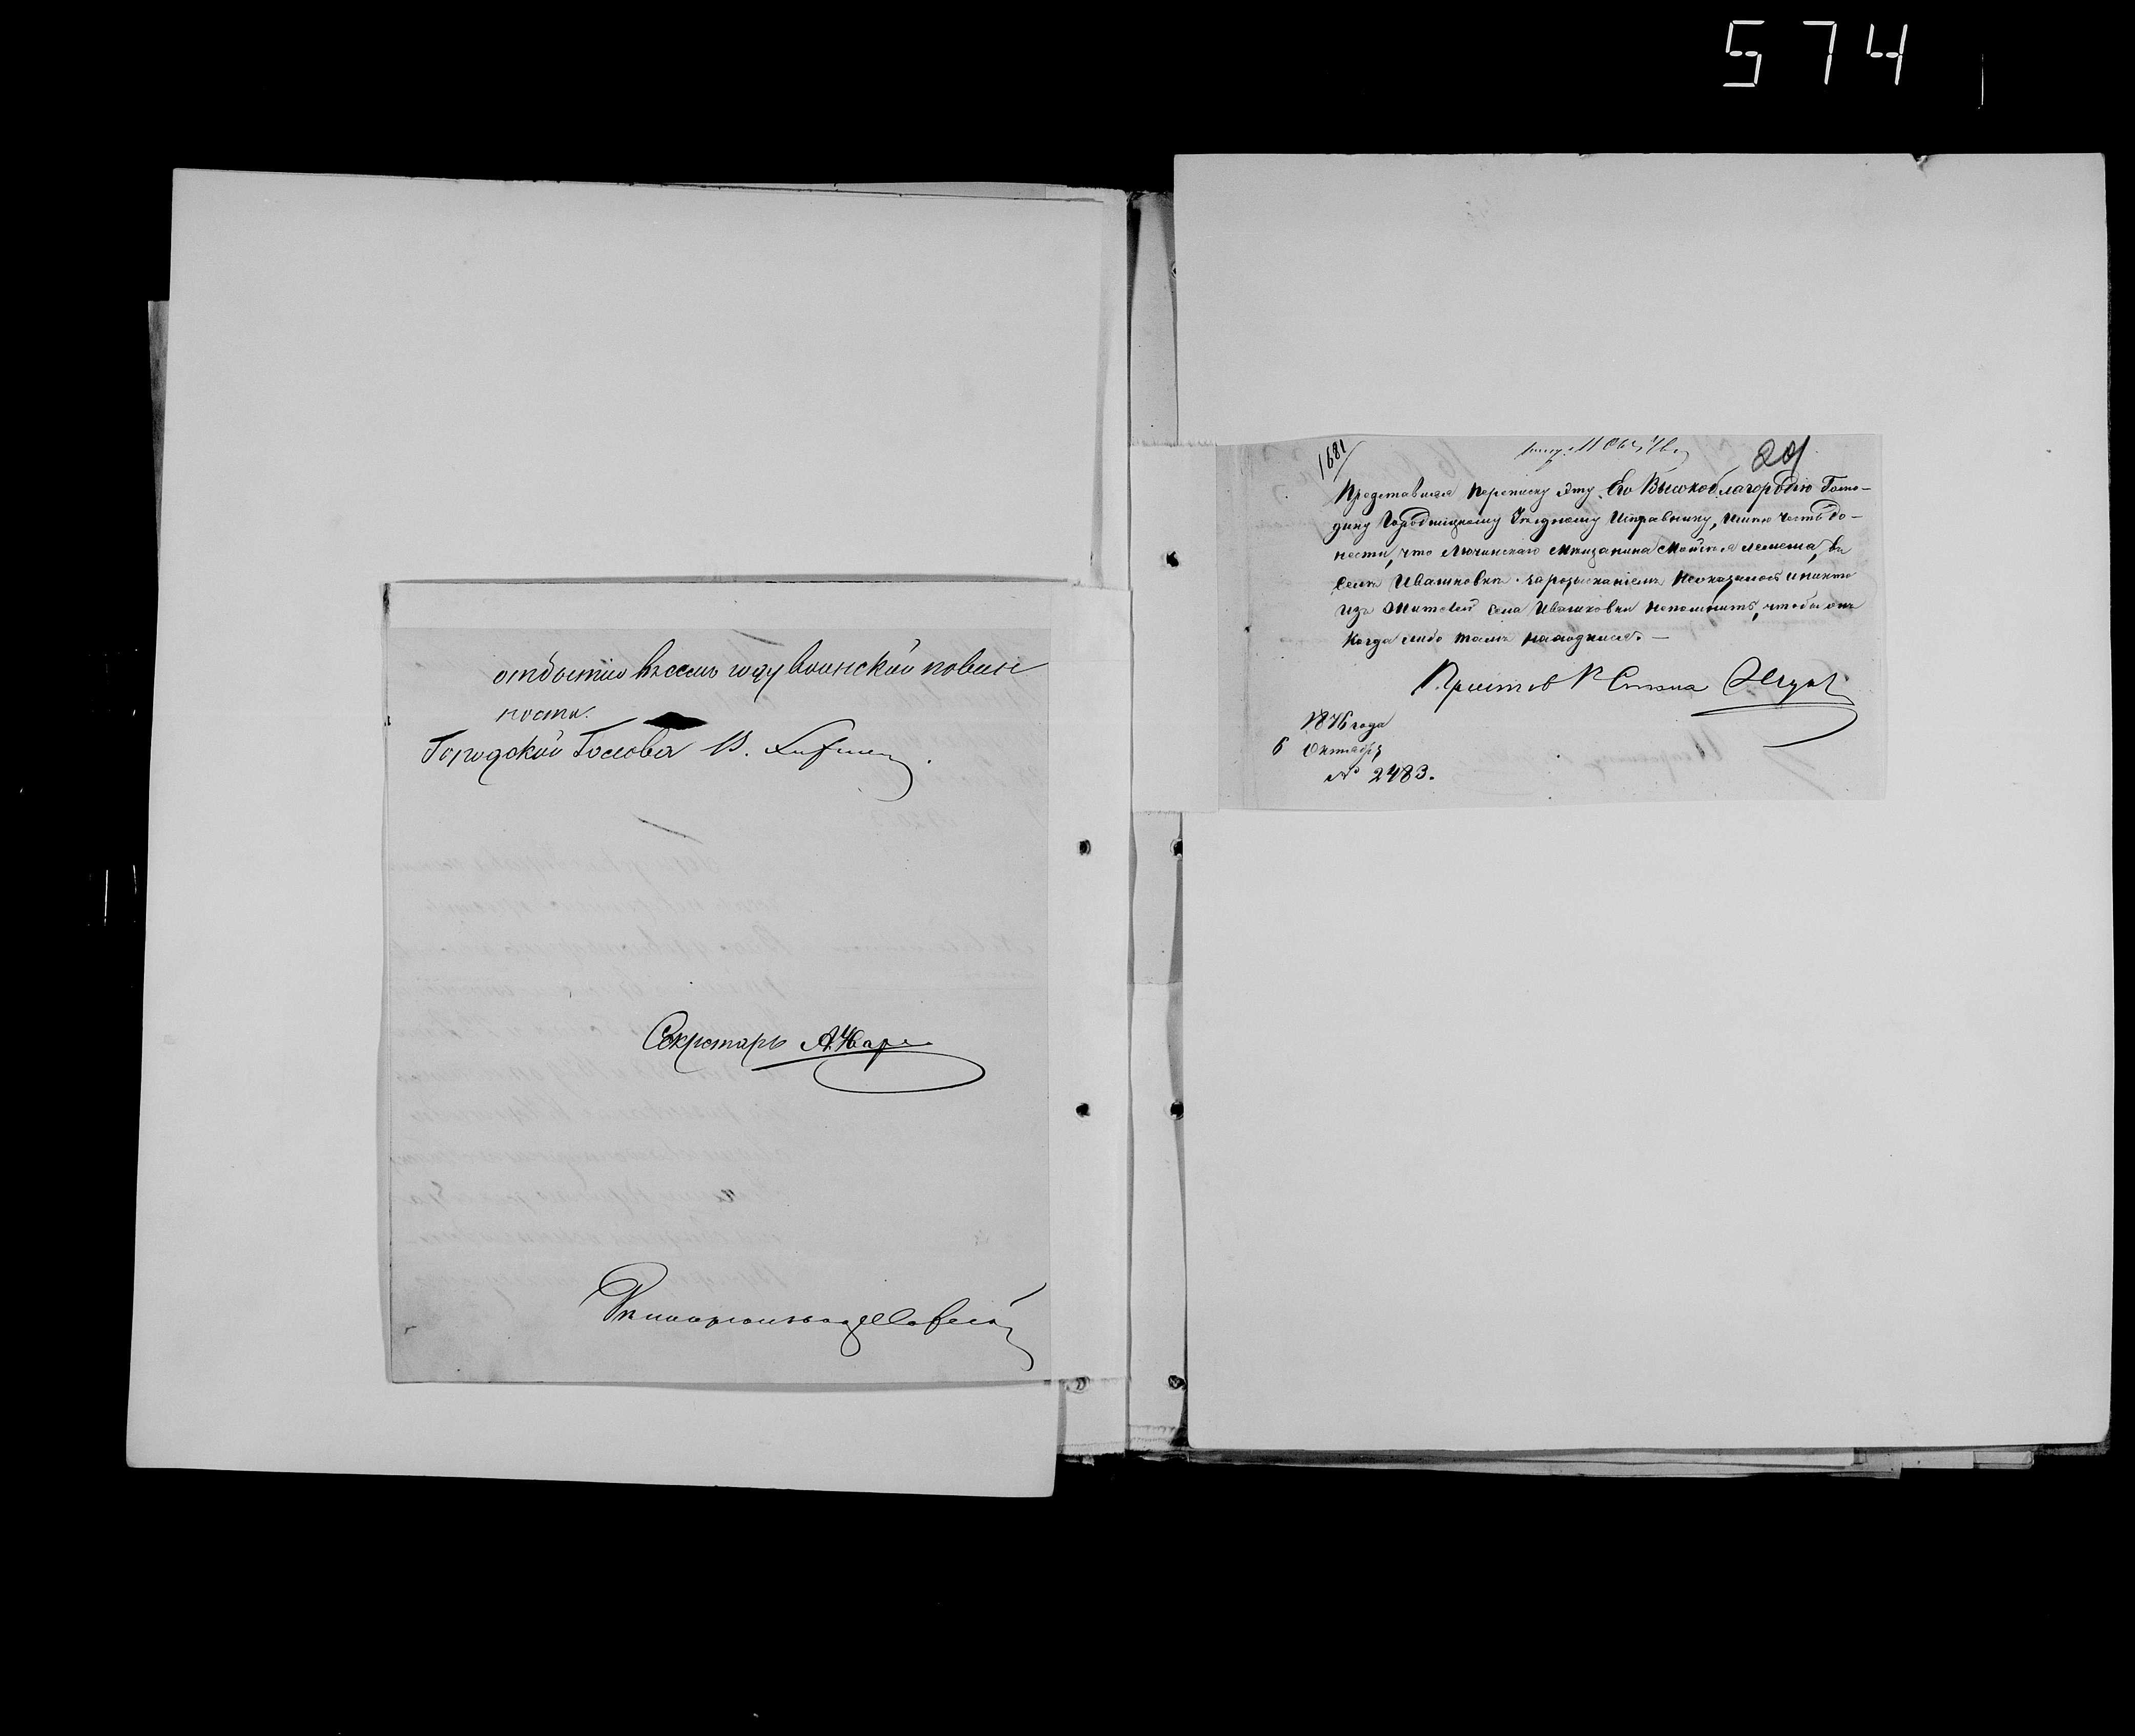 574
отбытию въ семъ году воинской повин
ности.
Городской Голова В.
Секретарь А.
1681
201
Представляя переписку эту Его Высокоблагородію Госпо-
дину Городницкому Уѣздному Исправнику, имѣю честь до-
нести, что Лючинскаго мѣщанина Лемеша, въ
селѣ Ивашковкѣ за розысканіемъ неоказалось и никто
изъ жителей села Ивашковки непомнитъ, чтобы онъ
когда либо тамъ находился. —
Приставъ Стана
1876 года
6 Октября
№ 2483.